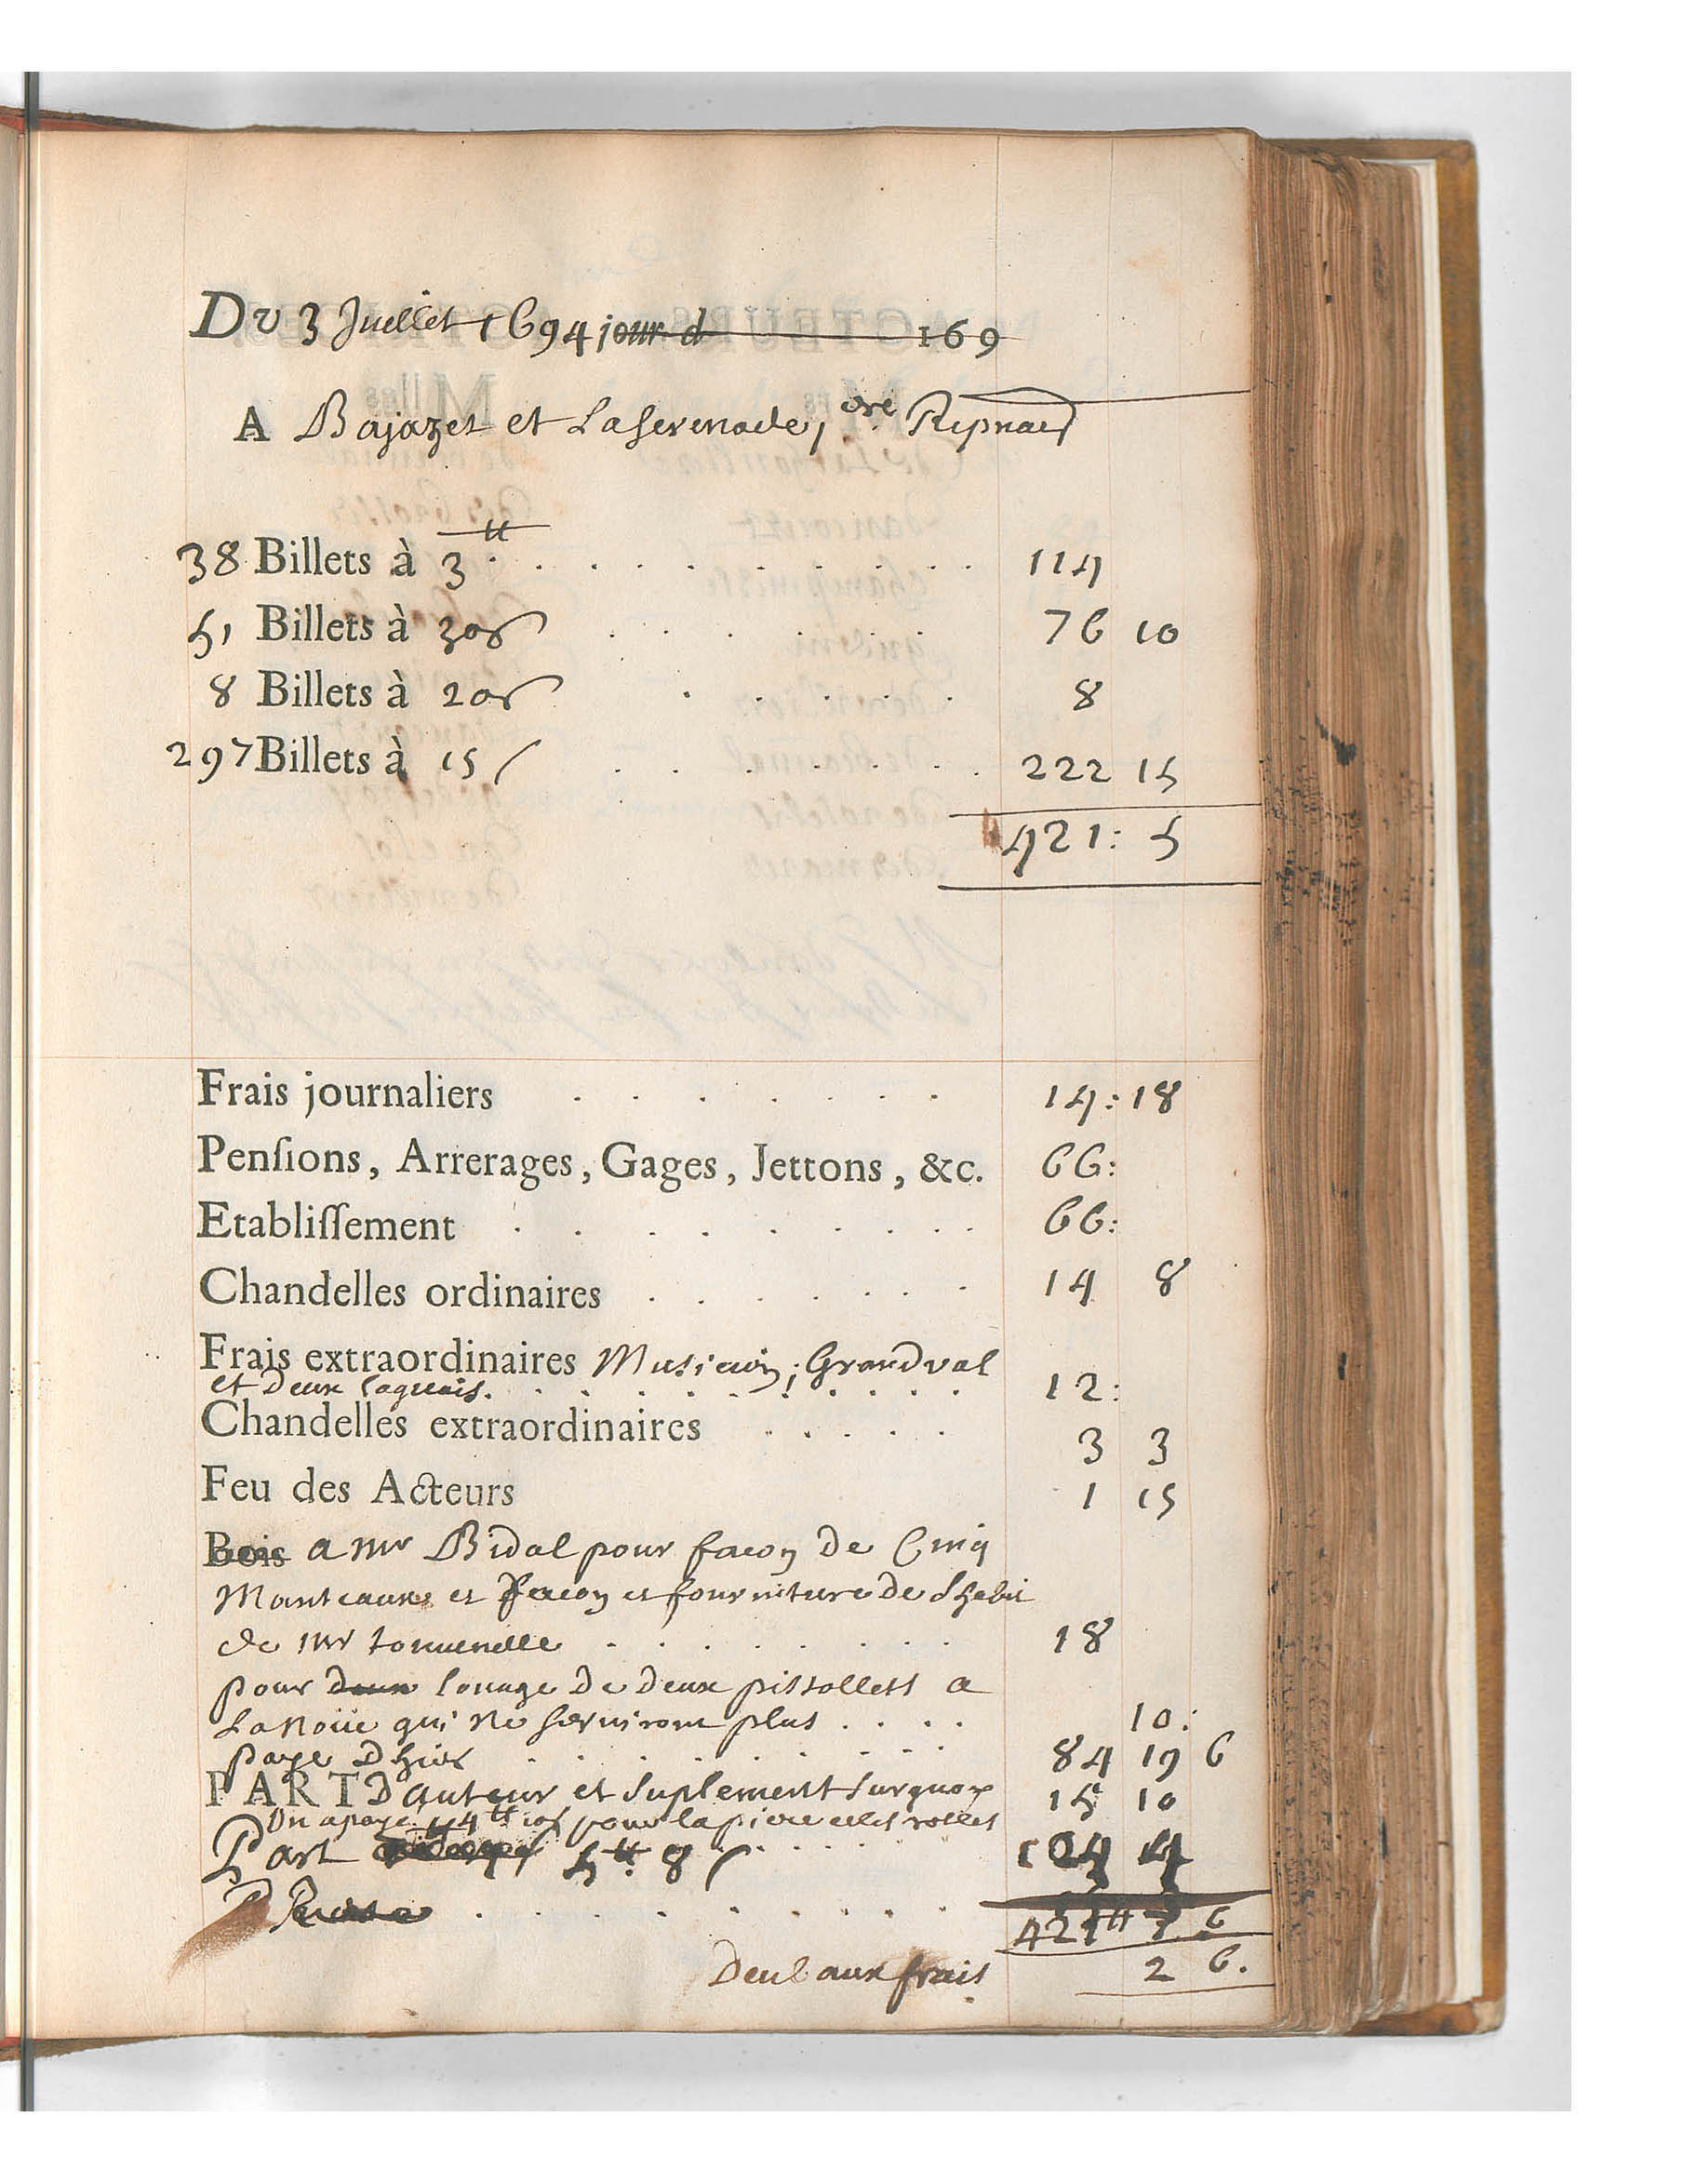 Du 3 Juellet 1694 jour d 169
A Bajazet et La Serenade, de Mr Renard
38 Billets à 3ᵗᵗ . . . . . . . 114
51 Billets à 30ſ . . . . . . 76 10
8 Billets à 20ſ . . . . . 8
297 Billets à 15ſ . . . . . . 222 15
421: 5
Frais journaliers . . . . . . . 14: 18
Penſions, Arrerages, Gages, Jettons, &c. 66:
Etabliſſement . . . . . . . . 66:
Chandelles ordinaires . . . . . . 14 8
Frais extraordinaires Musicien, Grandval
et deux laquais. . . . . . . . 12:
Chandelles extraordinaires . . . . . 3 3
Feu des Acteurs 1 15
Bois a Mr Bidal pour facon de Cinq
Manteaux et facon et fourniture de Lhabit
de Mr . . . . . . 18
pour deux louage de deux pistollets a
Lanoüe qui ne serviront plus . . . . 10:
paye dhier . . . . . . . 84 19 6
PART Dauteur et suplement surquoy 15 10
On a paye 10ſ pour la piece et les rolles
Part 5ᵗᵗ: 8ſ . . . . 104 4
. . . . . . . . 421ᵗᵗ 7 6
Deub aux frais 2 6.